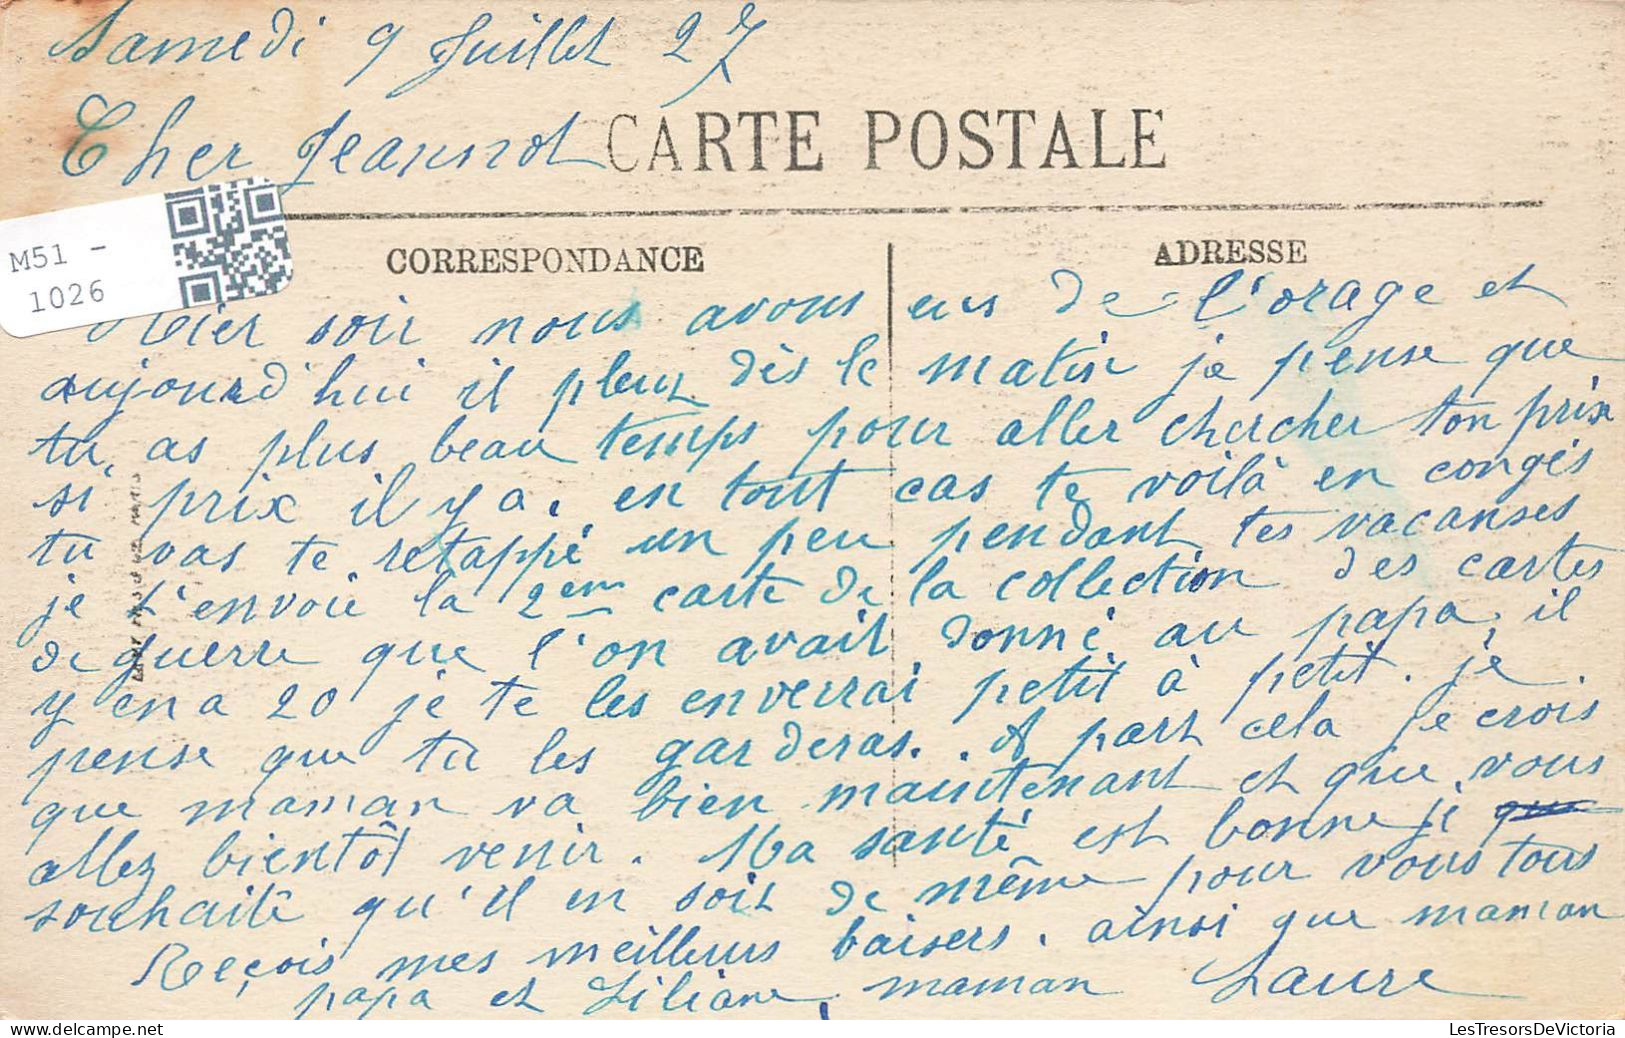 Samedi 9 Juillet 27
Cher Jeannot
CARTE POSTALE
M51 -
1026
CORRESPONDANCE
ADRESSE
Hier soir nous avons eus de l'orage et
aujourd'hui il pleut dès le matin je pense que
tu as plus beau temps pour aller chercher ton prix
si prix il y a. en tout cas te voilà en congés
tu vas te retappé un peu pendant tes vacanses
je t'envoie la 2em carte de la collection des cartes
de guerre que l'on avait donné au papa, il
y en a 20 je te les enverrai petit à petit. je
pense que tu les garderas. A part cela je crois
que maman va bien maintenant et que vous
allez bientôt venir. Ma santé est bonne je
souhaite qu'il en soit de même pour vous tous
Reçois mes meilleurs baisers. ainsi que maman
papa et Liliane, maman Laure
LesTresorsDeVictoria